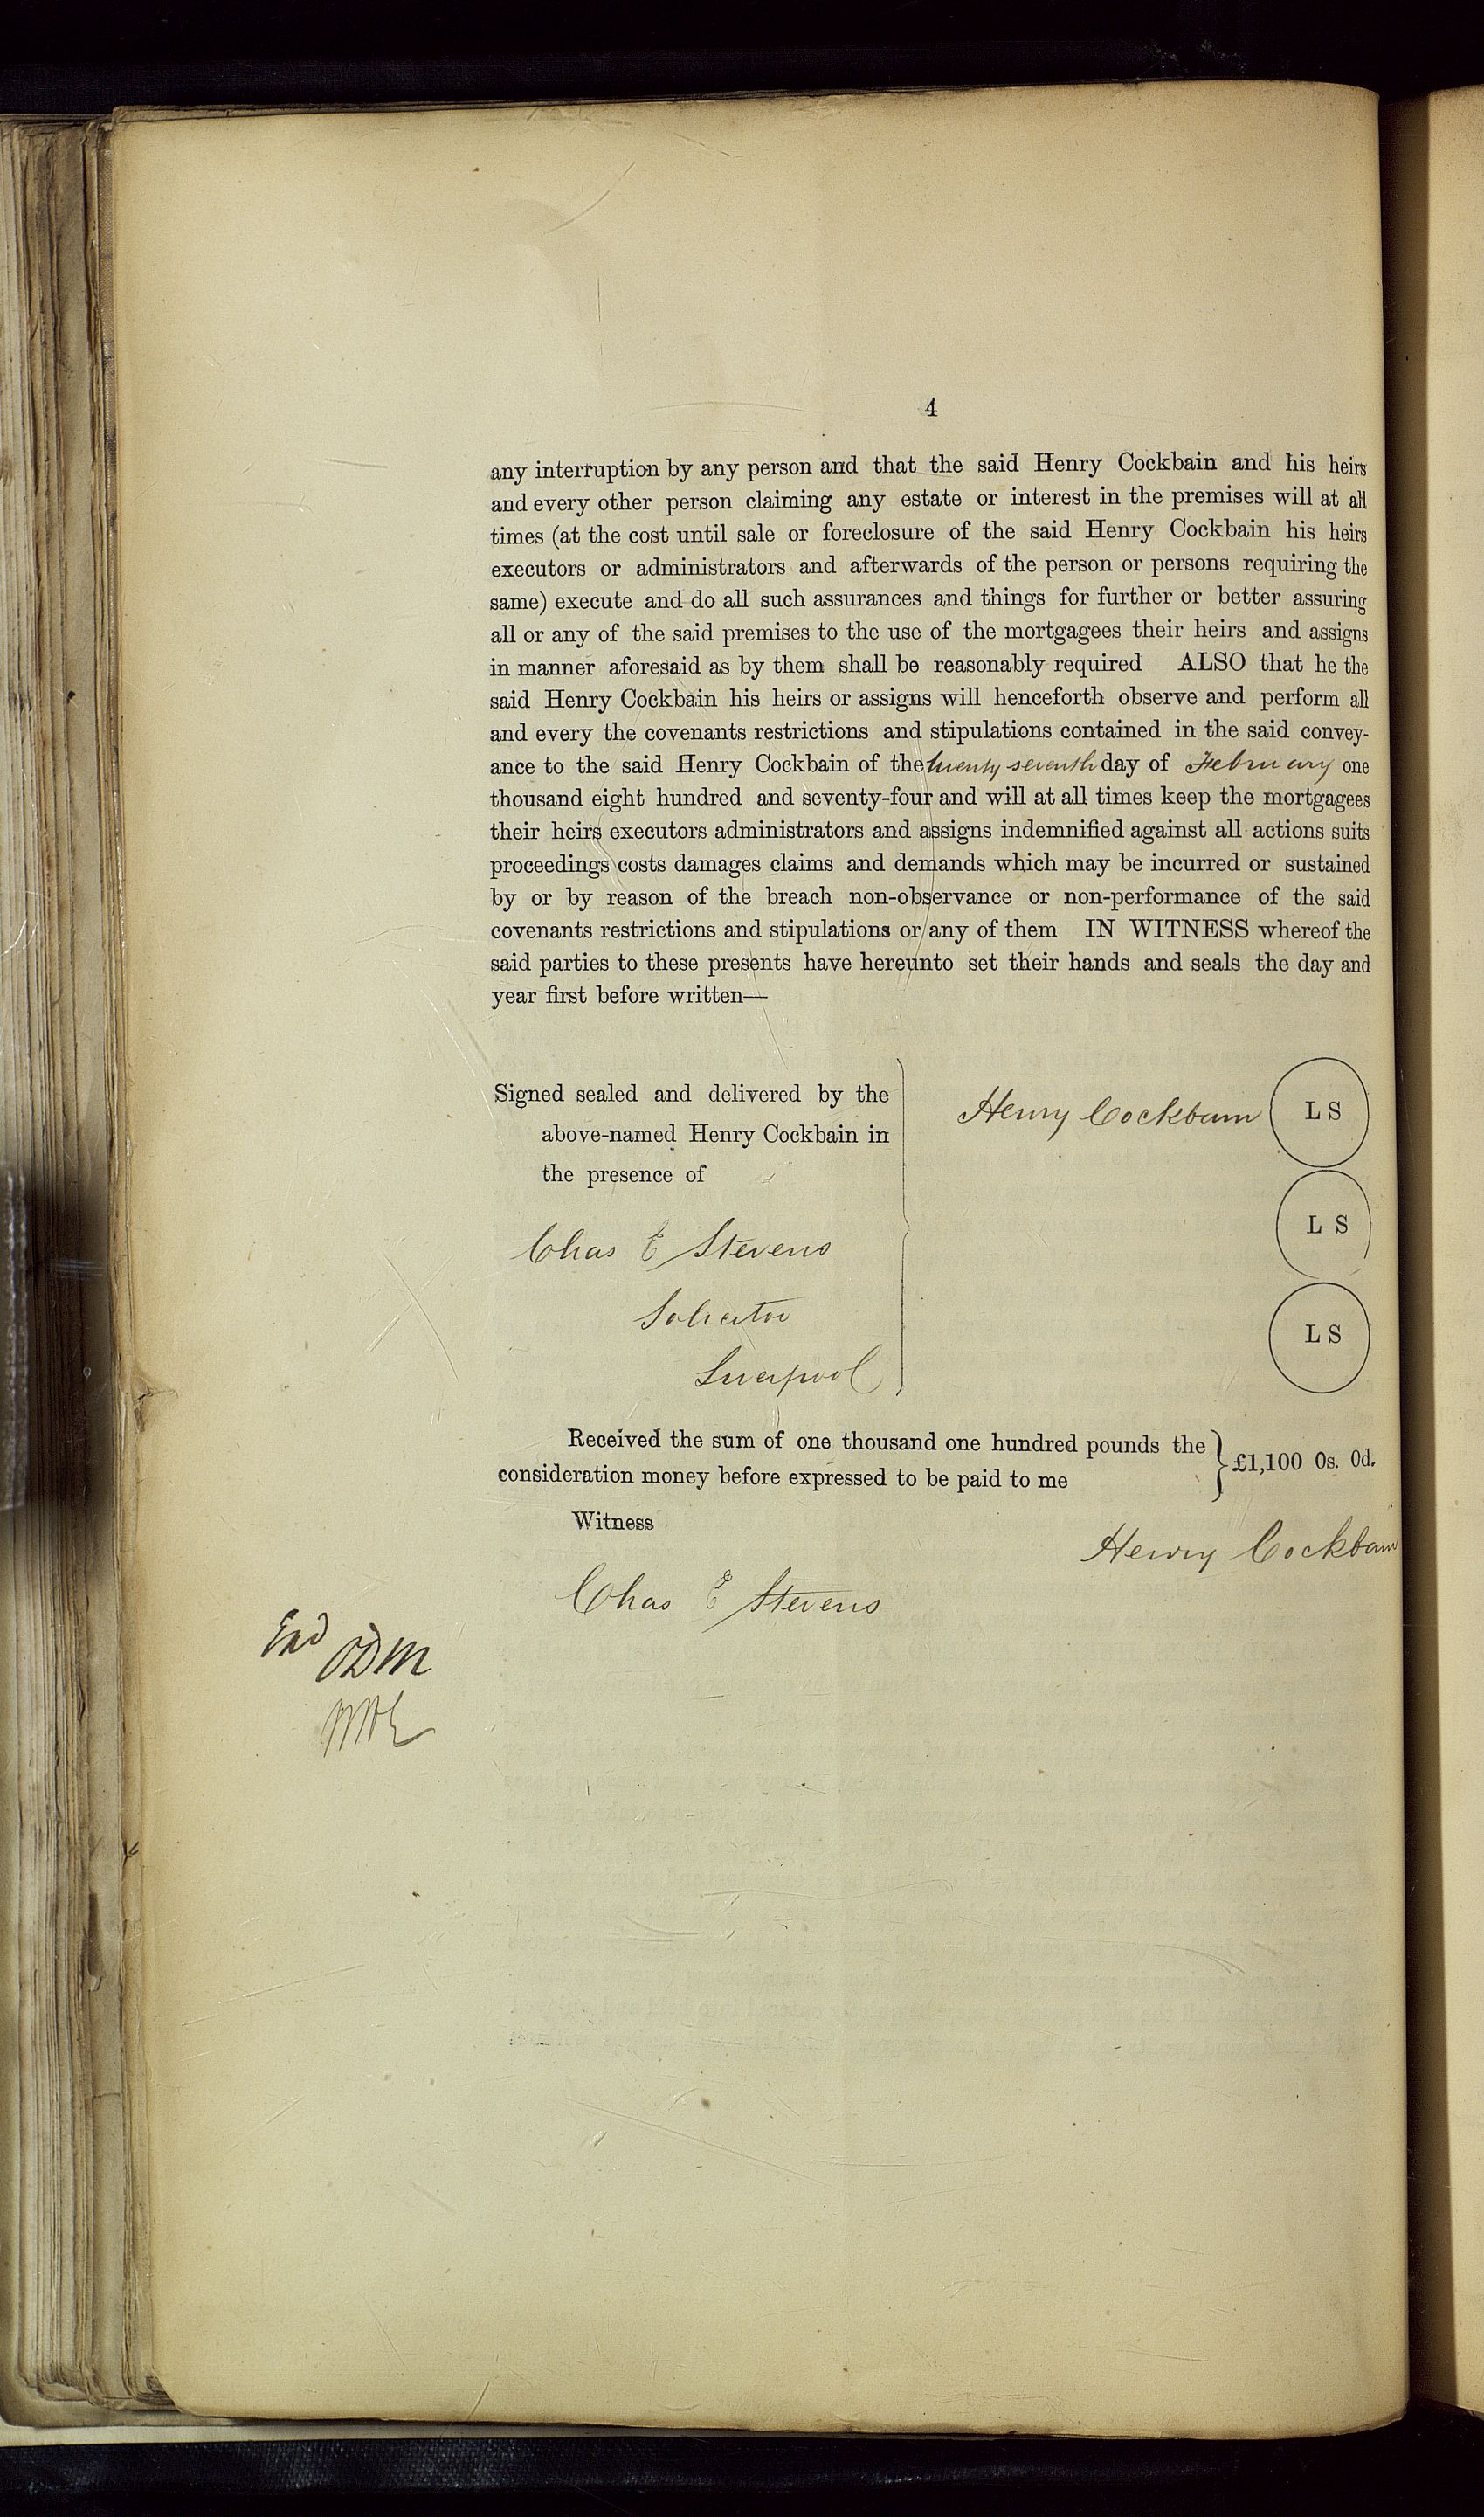 4
any interruption by any person and that the said Henry Cockbain and his heirs
and every other person claiming any estate or interest in the premises will at all
times (at the cost until sale or foreclosure of the said Henry Cockbain his heirs
executors or administrators and afterwards of the person or persons requiring the
same) execute and do all such assurances and things for further or better assuring
all or any of the said premises to the use of the mortgagees their heirs and assigns
in manner aforesaid as by them shall be reasonably required ALSO that he the
said Henry Cockbain his heirs or assigns will henceforth observe and perform all
and every the covenants restrictions and stipulations contained in the said convey-
ance to the said Henry Cockbain of the twenty seventh day of February one
thousand eight hundred and seventy-four and will at all times keep the mortgagees
their heirs executors administrators and assigns indemnified against all actions suits
proceedings costs damages claims and demands which may be incurred or sustained
by or by reason of the breach non-observance or non-performance of the said
covenants restrictions and stipulations or any of them IN WITNESS whereof the
said parties to these presents have hereunto set their hands and seals the day and
year first before written—
Signed sealed and delivered by the
above-named Henry Cockbain in
the presence of
Chas E Stevens
Solicitor
Liverpool
Henry Cockbain L S
L S
L S
Received the sum of one thousand one hundred pounds the
consideration money before expressed to be paid to me
£1,100 0s. 0d.
Witness
Henry Cockbain
Chas E Stevens